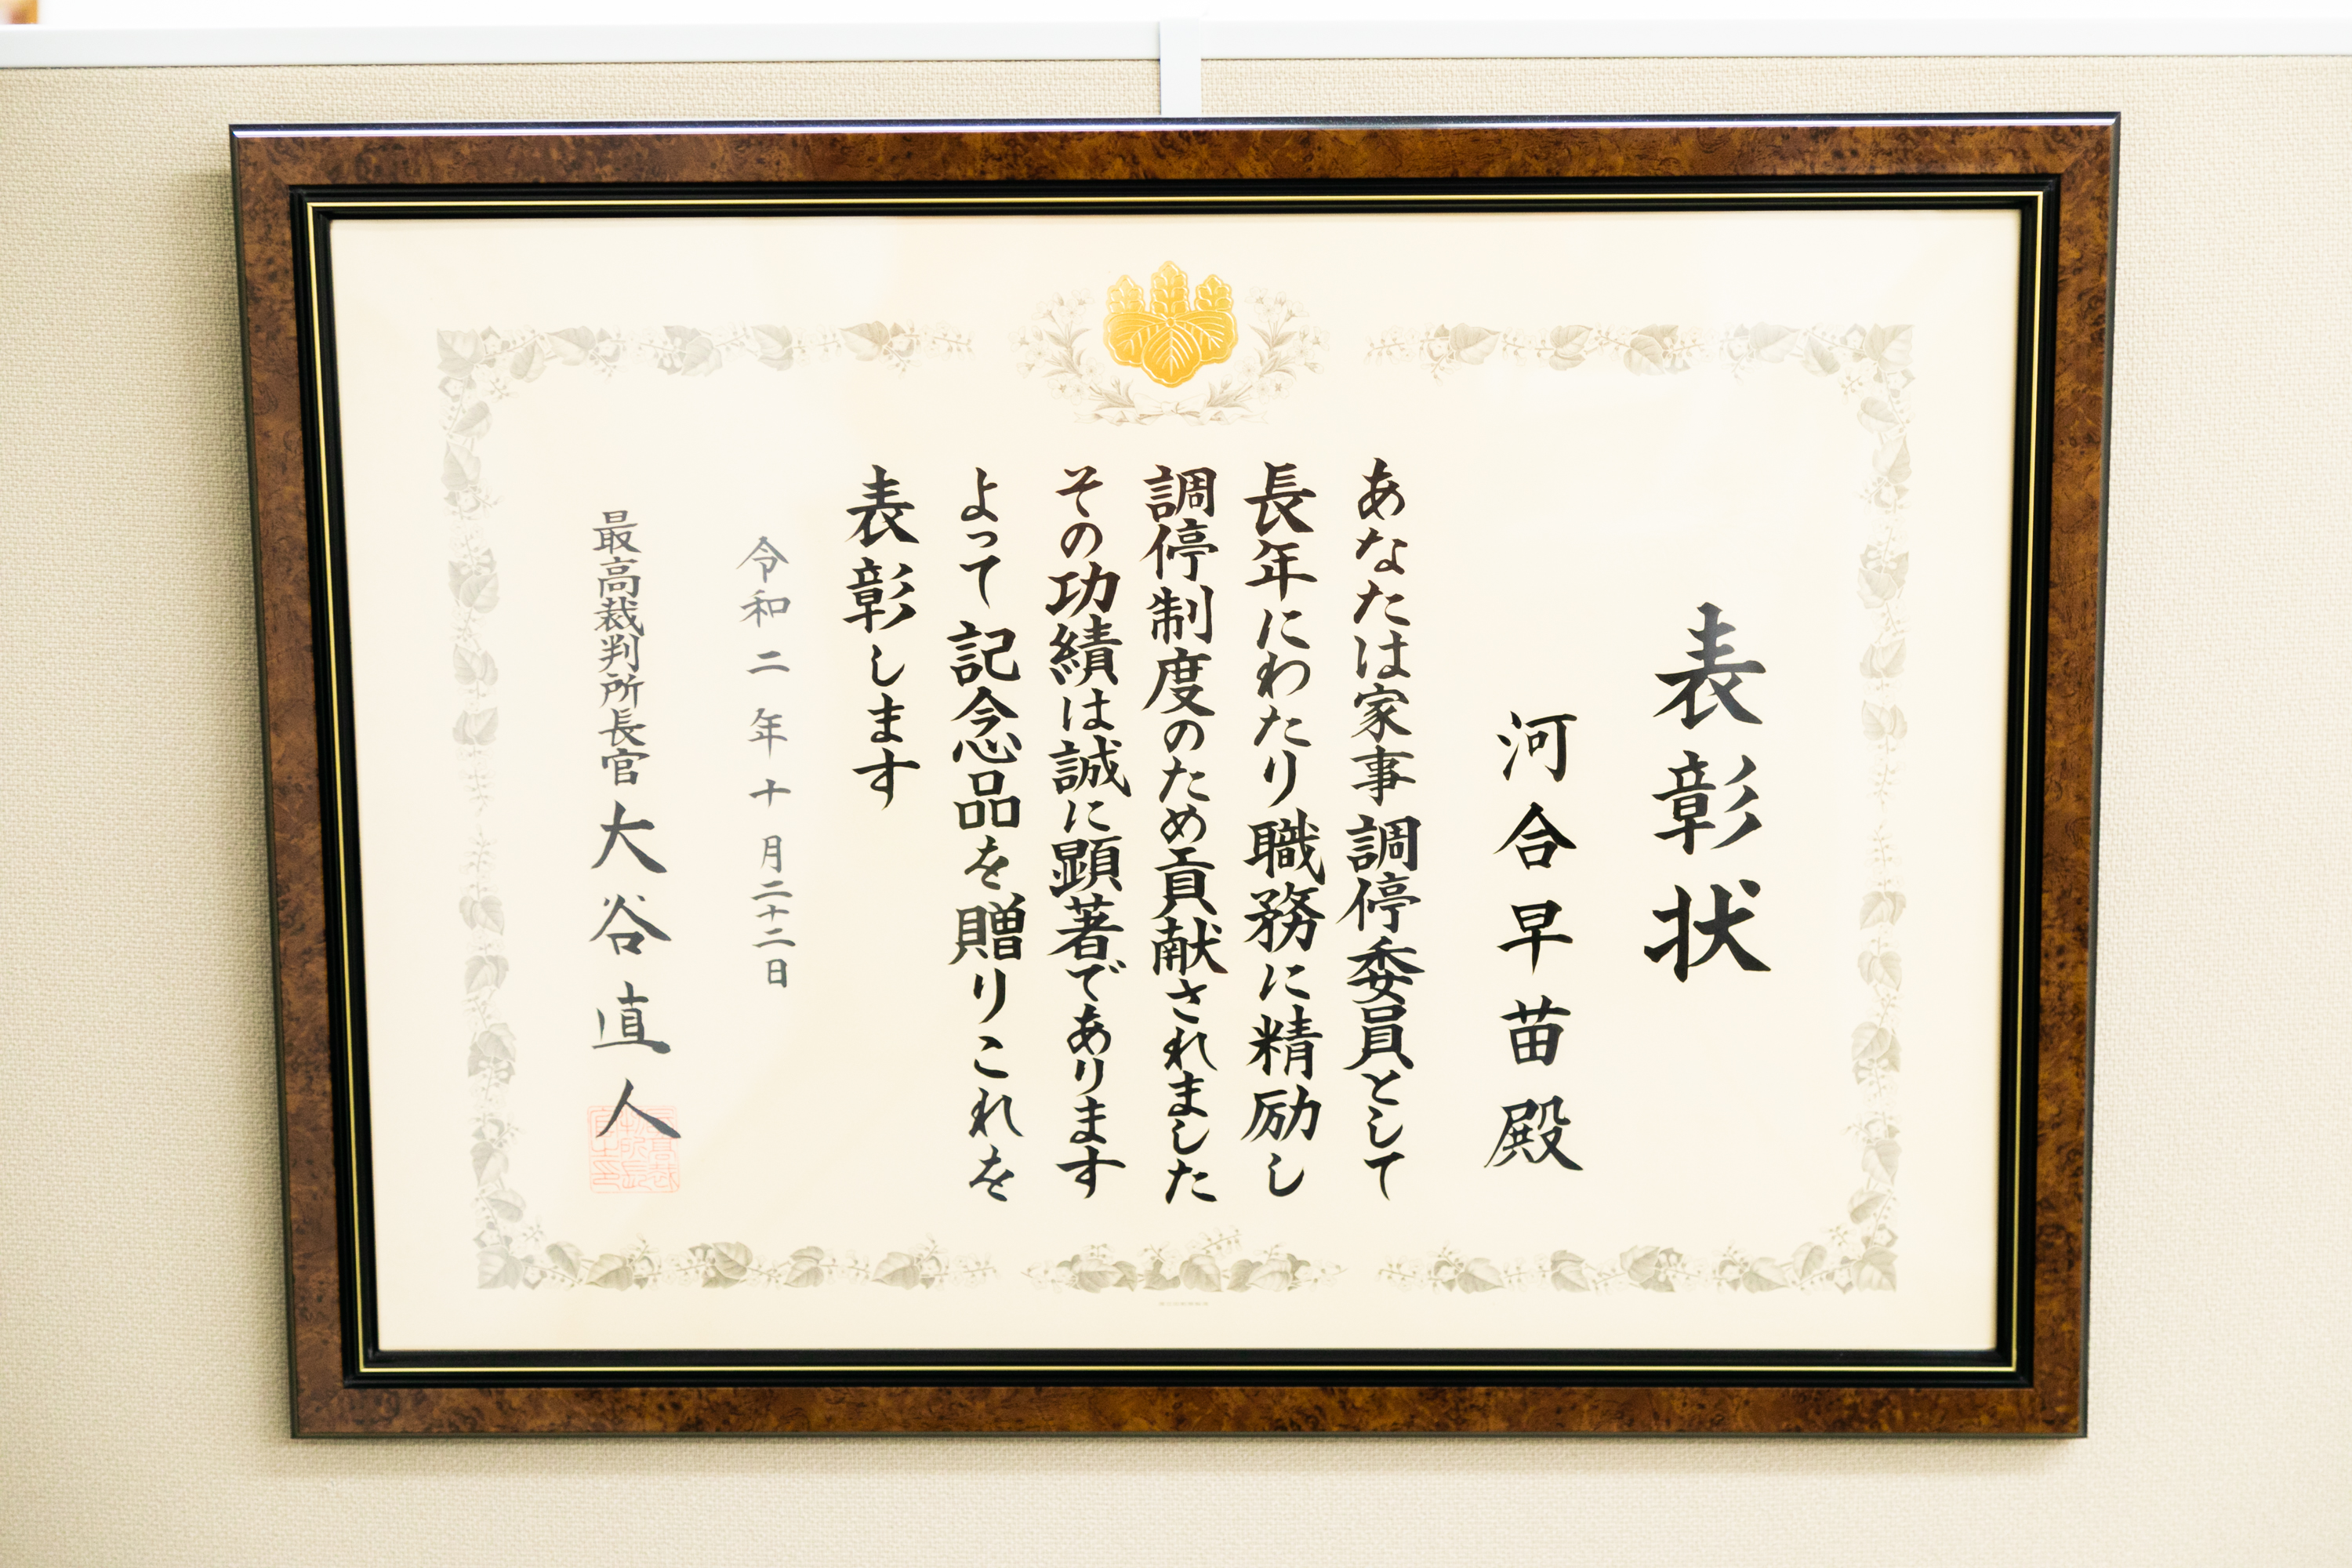 表彰状
河合早苗殿
あなたは家事調停委員として
長年にわたり職務に精励し
調停制度のため貢献されました
その功績は誠に顕著であります
よって記念品を贈りこれを
表彰します
令和二年十月二十二日
最高裁判所長官大谷直人